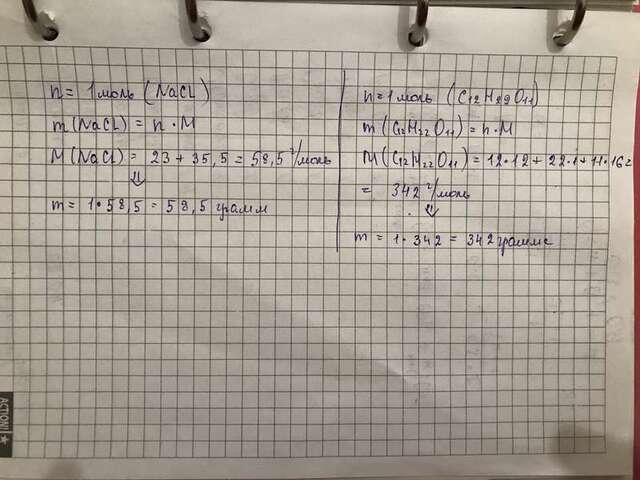 n = 1 моль (NaCl)
m (NaCl) = n · M
M (NaCl) = 23 + 35,5 = 58,5 г/моль
⇓
m = 1 · 58,5 = 58,5 грамм
n = 1 моль (C12H22O11)
m (C12H22O11) = n · M
M (C12H22O11) = 12·12 + 22·1 + 11·16 =
= 342 г/моль
⇓
m = 1 · 342 = 342 грамма
ACTION!